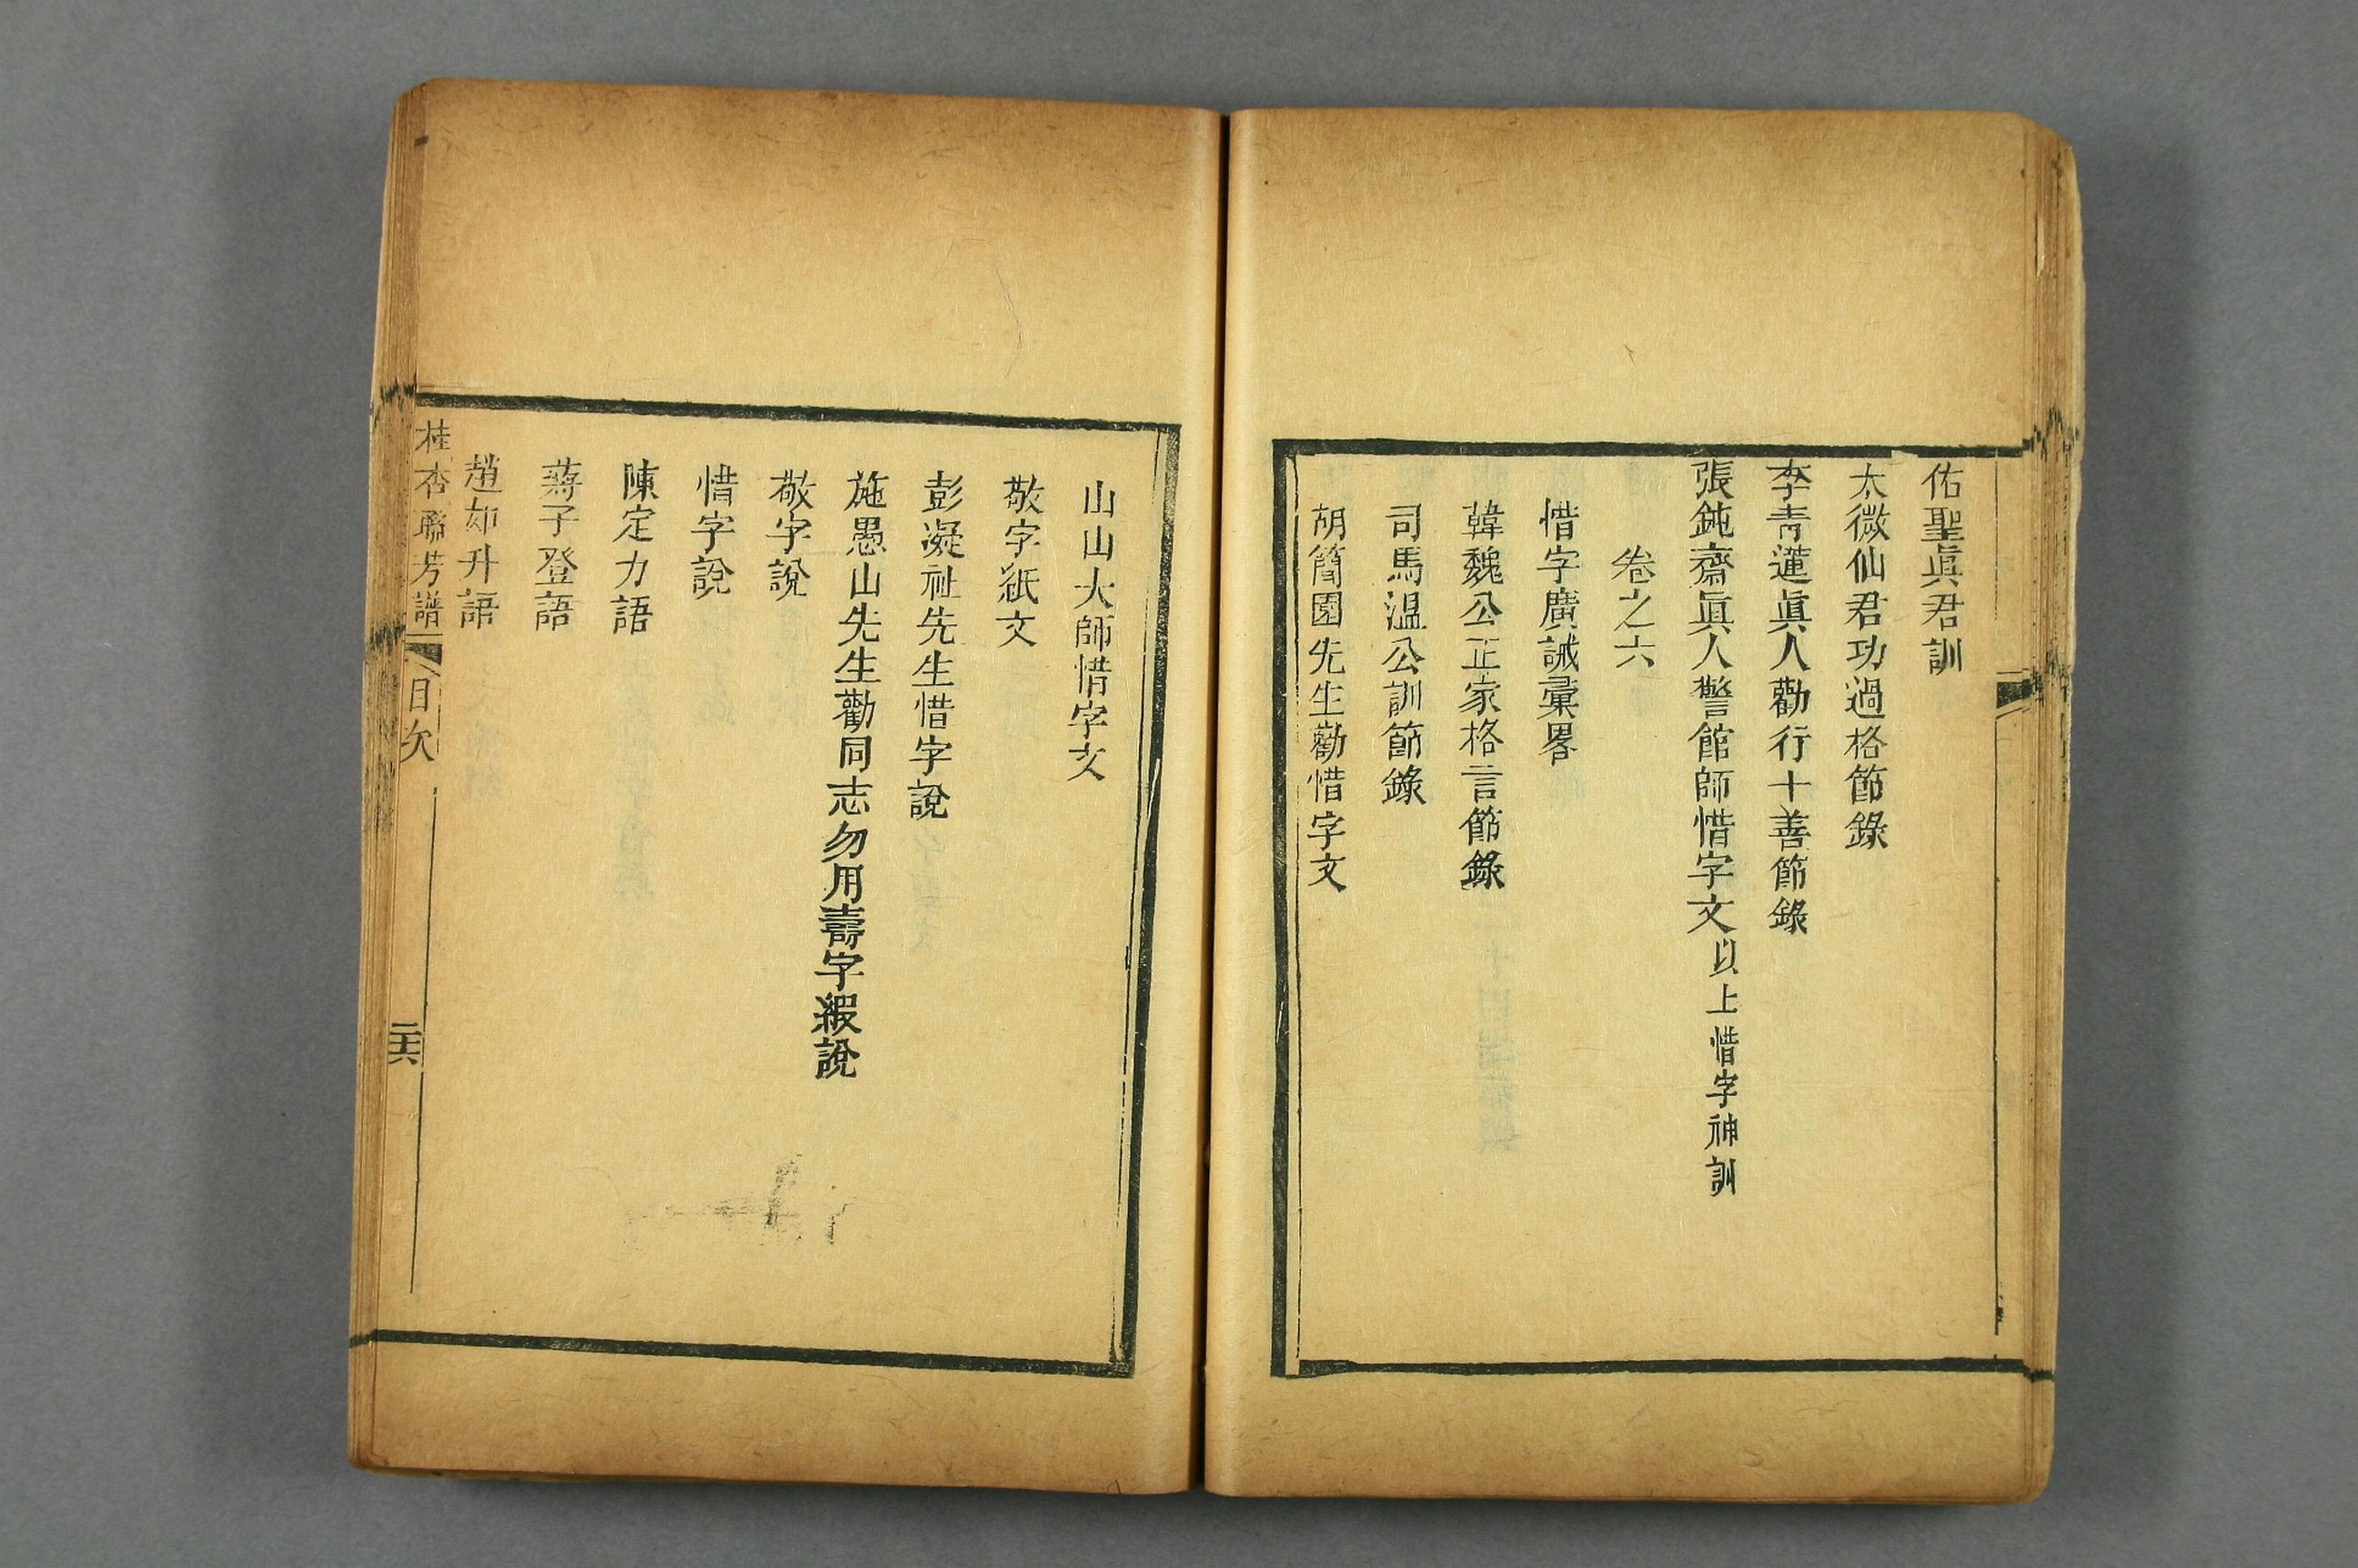 佑聖眞君訓
太微仙君功過格節錄
李青蓮眞人勸行十善節錄
張鈍齋眞人警館師惜字文以上惜字神訓
卷之六
惜字廣誡彙畧
韓魏公正家格言節錄
司馬溫公訓節錄
胡簡園先生勸惜字文
山山大師惜字文
敬字紙文
彭凝祉先生惜字說
施愚山先生勸同志勿用壽字緞說
敬字說
惜字說
陳定力語
蔣子登語
趙如升語
桂杏聯芳譜
目次
二十六